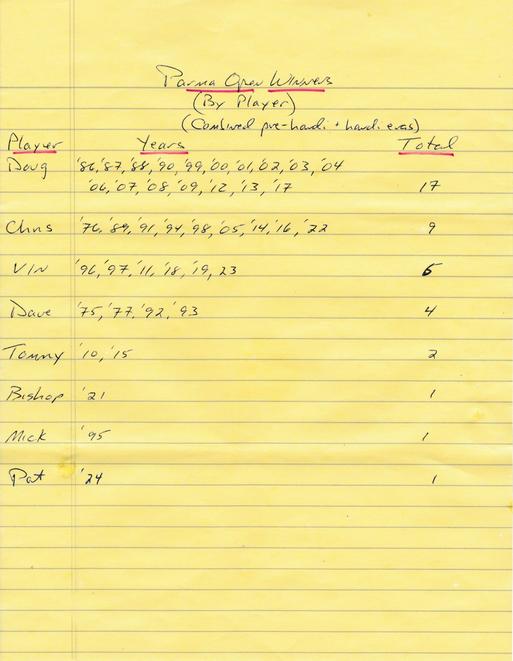 Parma Open Winners
(By Player)
(Combined pre-handi + handi eras)
Player Years Total
Doug '86, '87, '88, '90, '99, '00, '01, '02, '03, '04
'06, '07, '08, '09, '12, '13, '17 17
Chris '76, '89, '91, '94, '98, '05, '14, '16, '22 9
VIN '96, '97, '11, '18, '19, 23 6
Dave '75, '77, '92, '93 4
Tommy '10, '15 2
Bishop '21 1
Mick '95 1
Pat '24 1